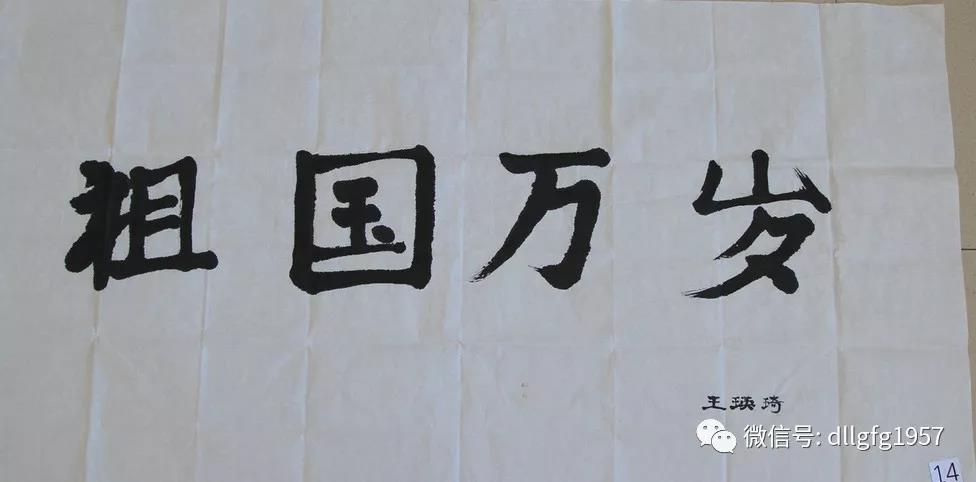 祖国万岁
王瑛琦
微信号: dllgfg1957
14